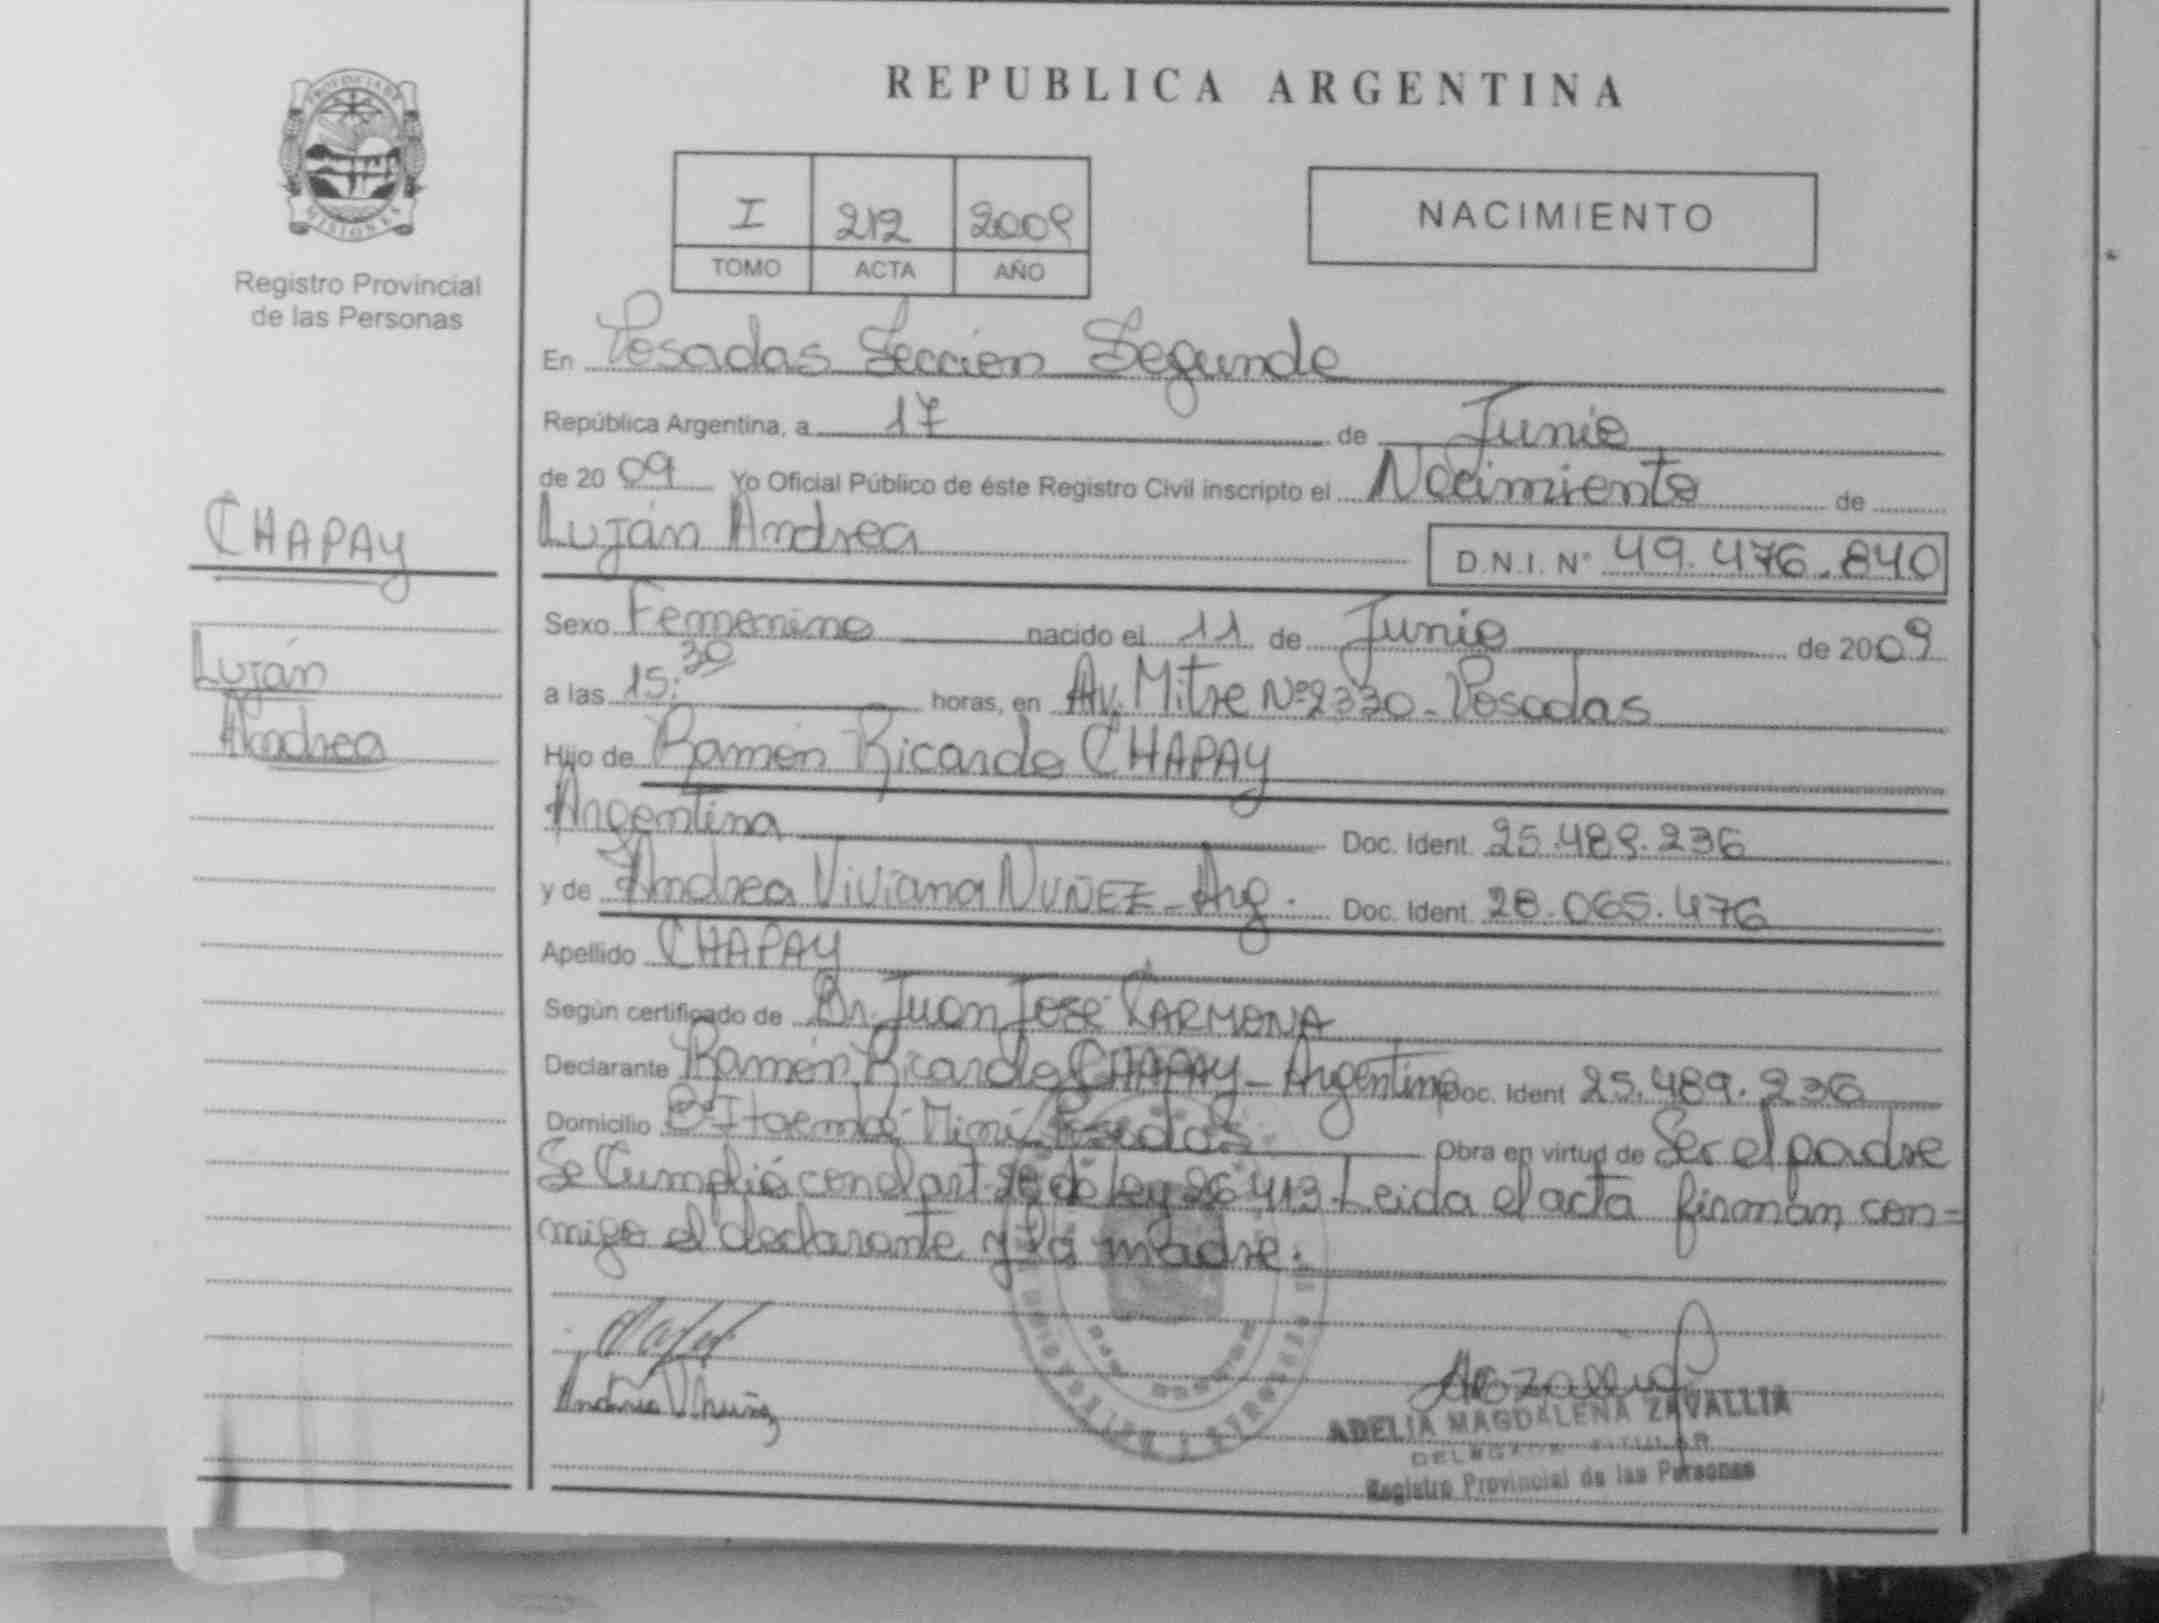 PROVINCIA DE
MISIONES
Registro Provincial
de las Personas
CHAPAY
Luján
Andrea
REPUBLICA ARGENTINA
I 212 2009
TOMO ACTA AÑO
NACIMIENTO
En Posadas Sección Segunda
República Argentina, a 17 de Junio
de 2009 Yo Oficial Público de éste Registro Civil inscripto el Nacimiento de
Luján Andrea D.N.I. Nº 49.476.840
Sexo Femenino nacido el 11 de Junio de 2009
a las 15:30 horas, en Av. Mitre Nº 2330 - Posadas
Hijo de Ramón Ricardo CHAPAY
Argentina Doc. Ident. 25.489.236
y de Andrea Viviana NUÑEZ - Arg. Doc. Ident. 28.065.476
Apellido CHAPAY
Según certificado de Dr. Juan José CARMONA
Declarante Ramón Ricardo CHAPAY - Argentino Doc. Ident 25.489.236
Domicilio Bº Itaembé Miní Posadas Obra en virtud de Ser el padre
Se Cumplió con el art. de ley 26413. Leida el acta firman con=
migo el declarante y la madre.
ADELIA MAGDALENA ZAVALLIA
DELEGADA TITULAR
Registro Provincial de las Personas